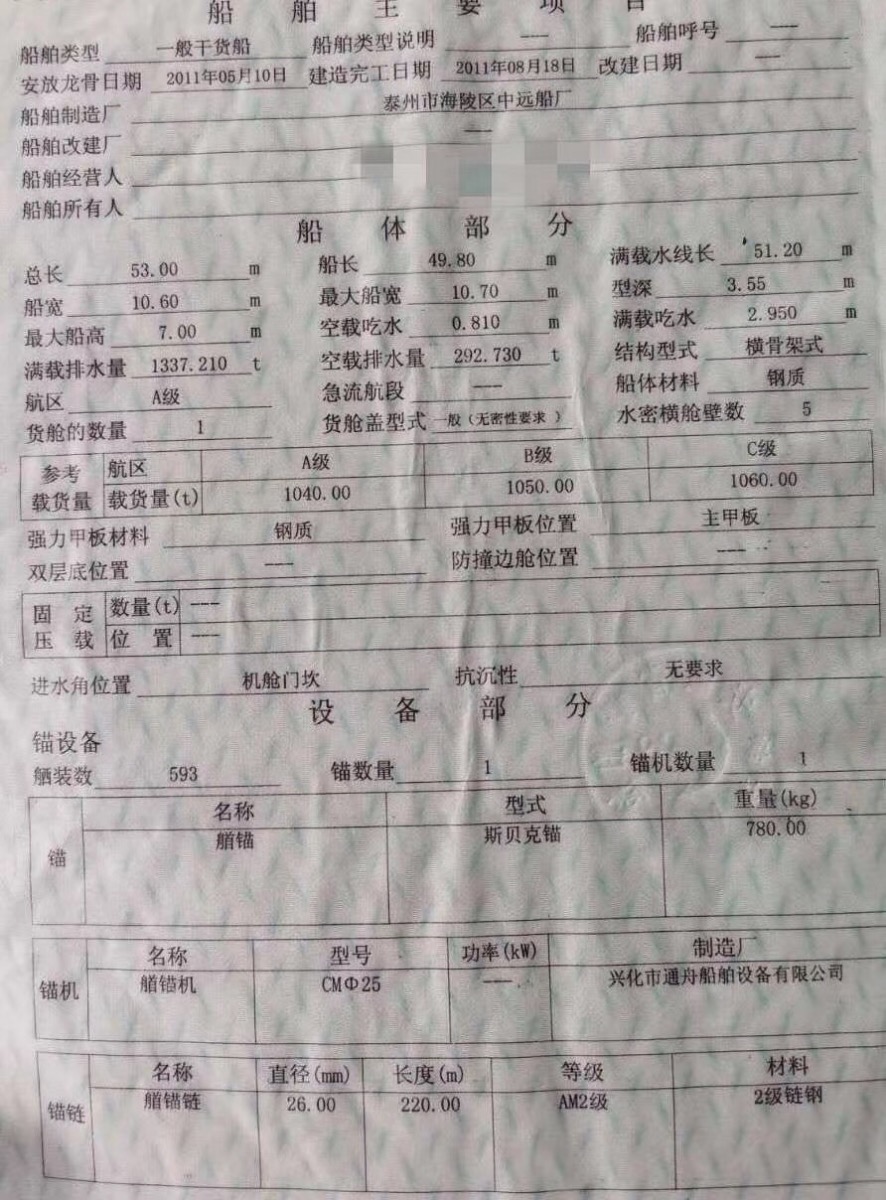 船舶主要项目
船舶类型 一般干货船 船舶类型说明 --- 船舶呼号 ---
安放龙骨日期 2011年05月10日 建造完工日期 2011年08月18日 改建日期 ---
船舶制造厂 泰州市海陵区中远船厂
船舶改建厂 ---
船舶经营人
船舶所有人
船体部分
总长 53.00 m 船长 49.80 m 满载水线长 51.20 m
船宽 10.60 m 最大船宽 10.70 m 型深 3.55 m
最大船高 7.00 m 空载吃水 0.810 m 满载吃水 2.950 m
满载排水量 1337.210 t 空载排水量 292.730 t 结构型式 横骨架式
航区 A级 急流航段 --- 船体材料 钢质
货舱的数量 1 货舱盖型式 一般（无密性要求） 水密横舱壁数 5
参考 航区 A级 B级 C级
载货量 载货量(t) 1040.00 1050.00 1060.00
强力甲板材料 钢质 强力甲板位置 主甲板
双层底位置 --- 防撞边舱位置 ---
固定 数量(t) ---
压载 位置 ---
进水角位置 机舱门坎 抗沉性 无要求
设备部分
锚设备
舾装数 593 锚数量 1 锚机数量 1
名称 型式 重量(kg)
锚 艏锚 斯贝克锚 780.00
名称 型号 功率(kW) 制造厂
锚机 艏锚机 CMΦ25 --- 兴化市通舟船舶设备有限公司
名称 直径(mm) 长度(m) 等级 材料
锚链 艏锚链 26.00 220.00 AM2级 2级链钢